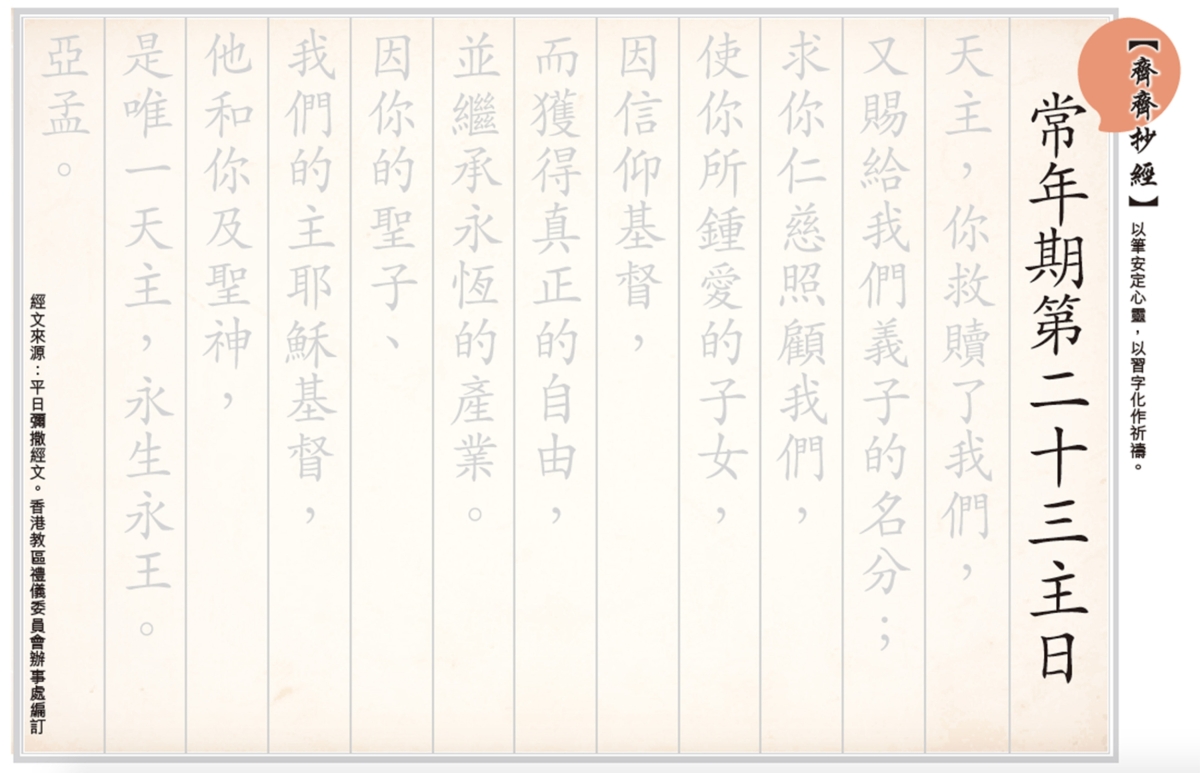 【齊齊抄經】
以筆安定心靈，以習字化作祈禱。
常年期第二十三主日
天主，你救贖了我們，
又賜給我們義子的名分；
求你仁慈照顧我們，
使你所鍾愛的子女，
因信仰基督，
而獲得真正的自由，
並繼承永恆的產業。
因你的聖子、
我們的主耶穌基督，
他和你及聖神，
是唯一天主，永生永王。
亞孟。
經文來源：平日彌撒經文。香港教區禮儀委員會辦事處編訂